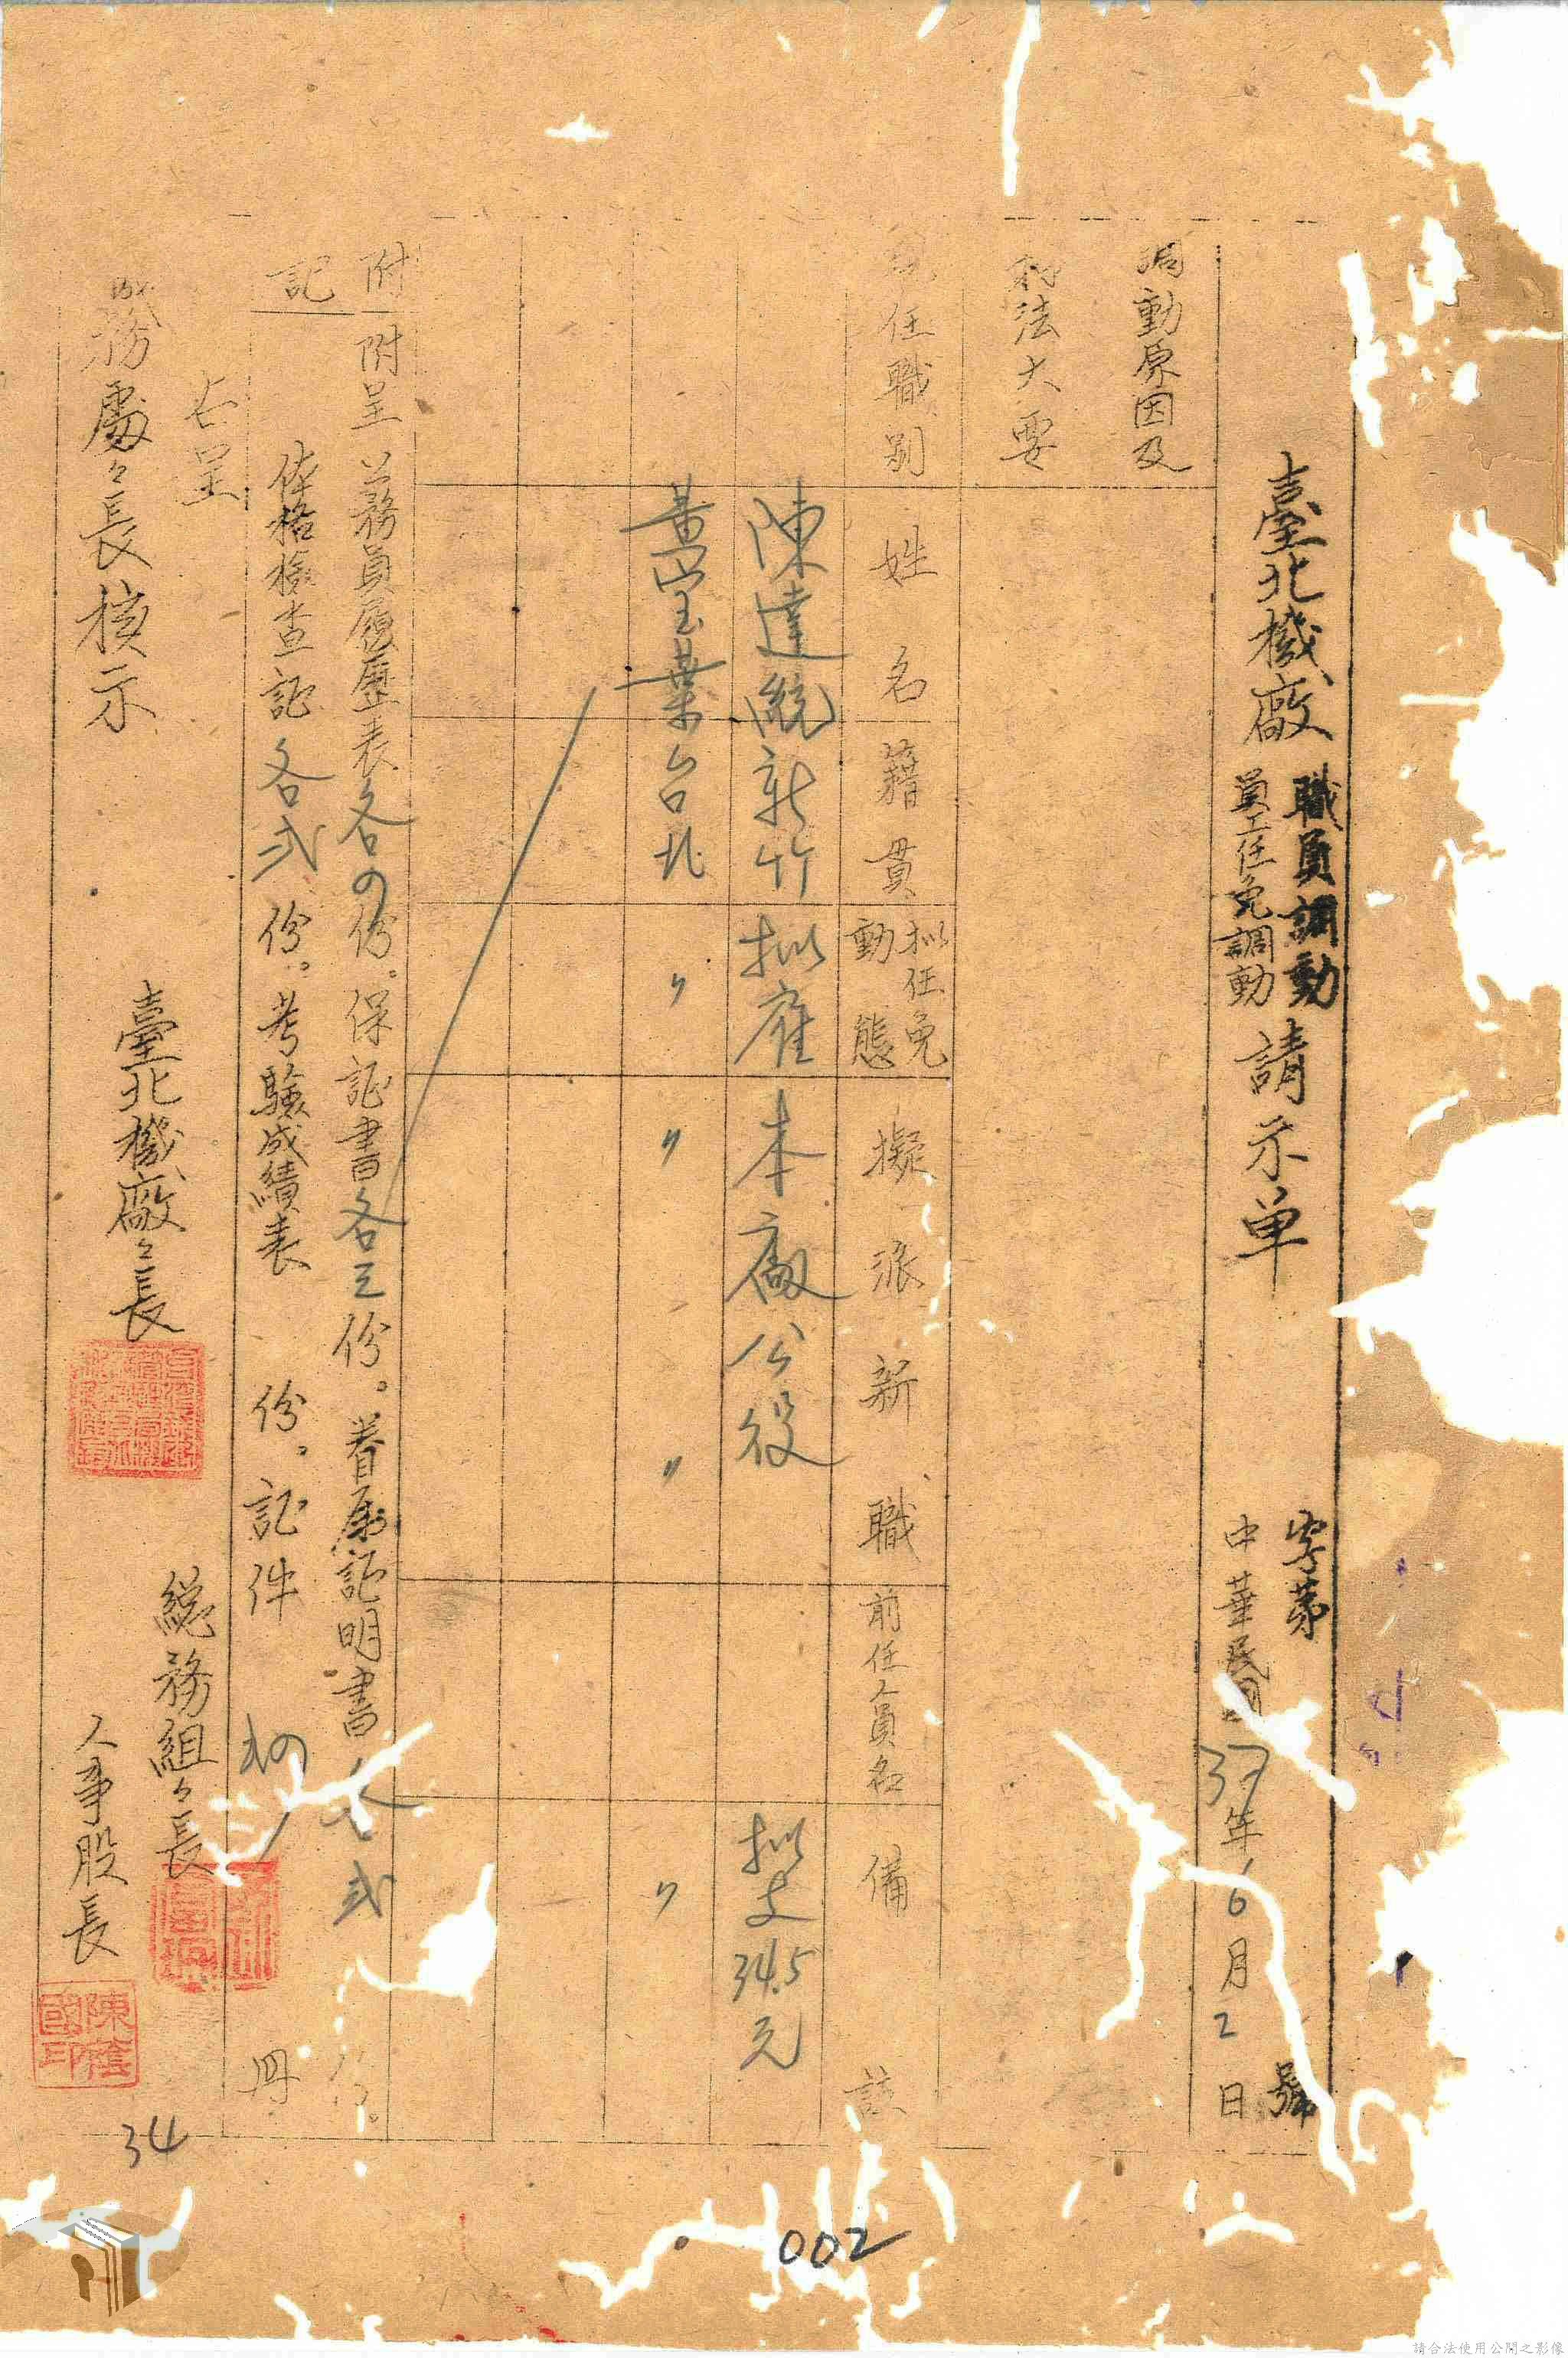 臺北機廠 職員調動 請示单 字第 號
員工任免調動 中華民國37年6月2日
調動原因及
法大要
任職別 姓名 籍貫 拟任免動態 擬派新職 前任人員名 備註
陳達統 新竹 拟雇 本廠公役 拟支34.5元
黃宝葉 台北 〃 〃 〃 〃
附記 附呈 公務員履歷表各の份。保証書各三份。眷屬証明書各弐份。
体格檢查証各弐份。考驗成績表 份。証件 冊
右呈
務處々長核示
臺北機廠々長
總務組々長
人事股長
陳蔭國印
34
002
請合法使用公開之影像